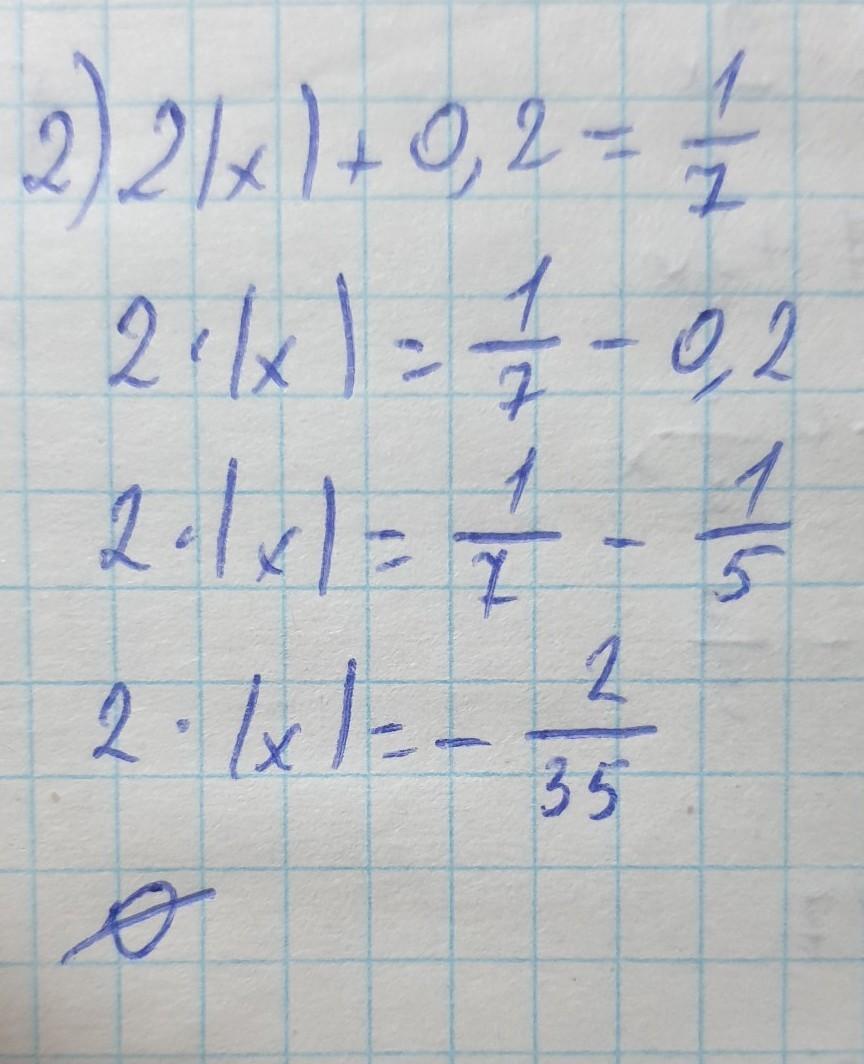 2) 2|x| + 0,2 = 1/7
2 · |x| = 1/7 - 0,2
2 · |x| = 1/7 - 1/5
2 · |x| = - 2/35
∅